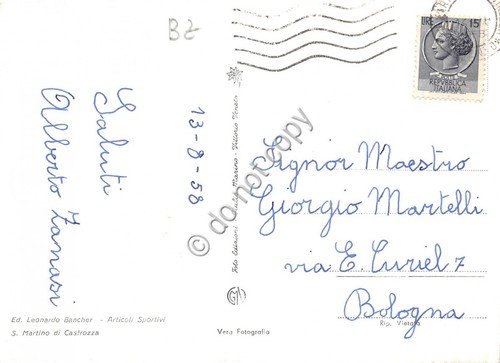 BZ
Saluti
Alberto Zanasi
13-8-58
LIRE 15
REPVBBLICA
ITALIANA
Signor Maestro
Giorgio Martelli
via E. Curiel 7
Bologna
Rip. Vietata
Ed. Leonardo Bancher - Articoli Sportivi
S. Martino di Castrozza
Vera Fotografia
Foto Edizioni Marino - Vittorio Veneto
© do not copy